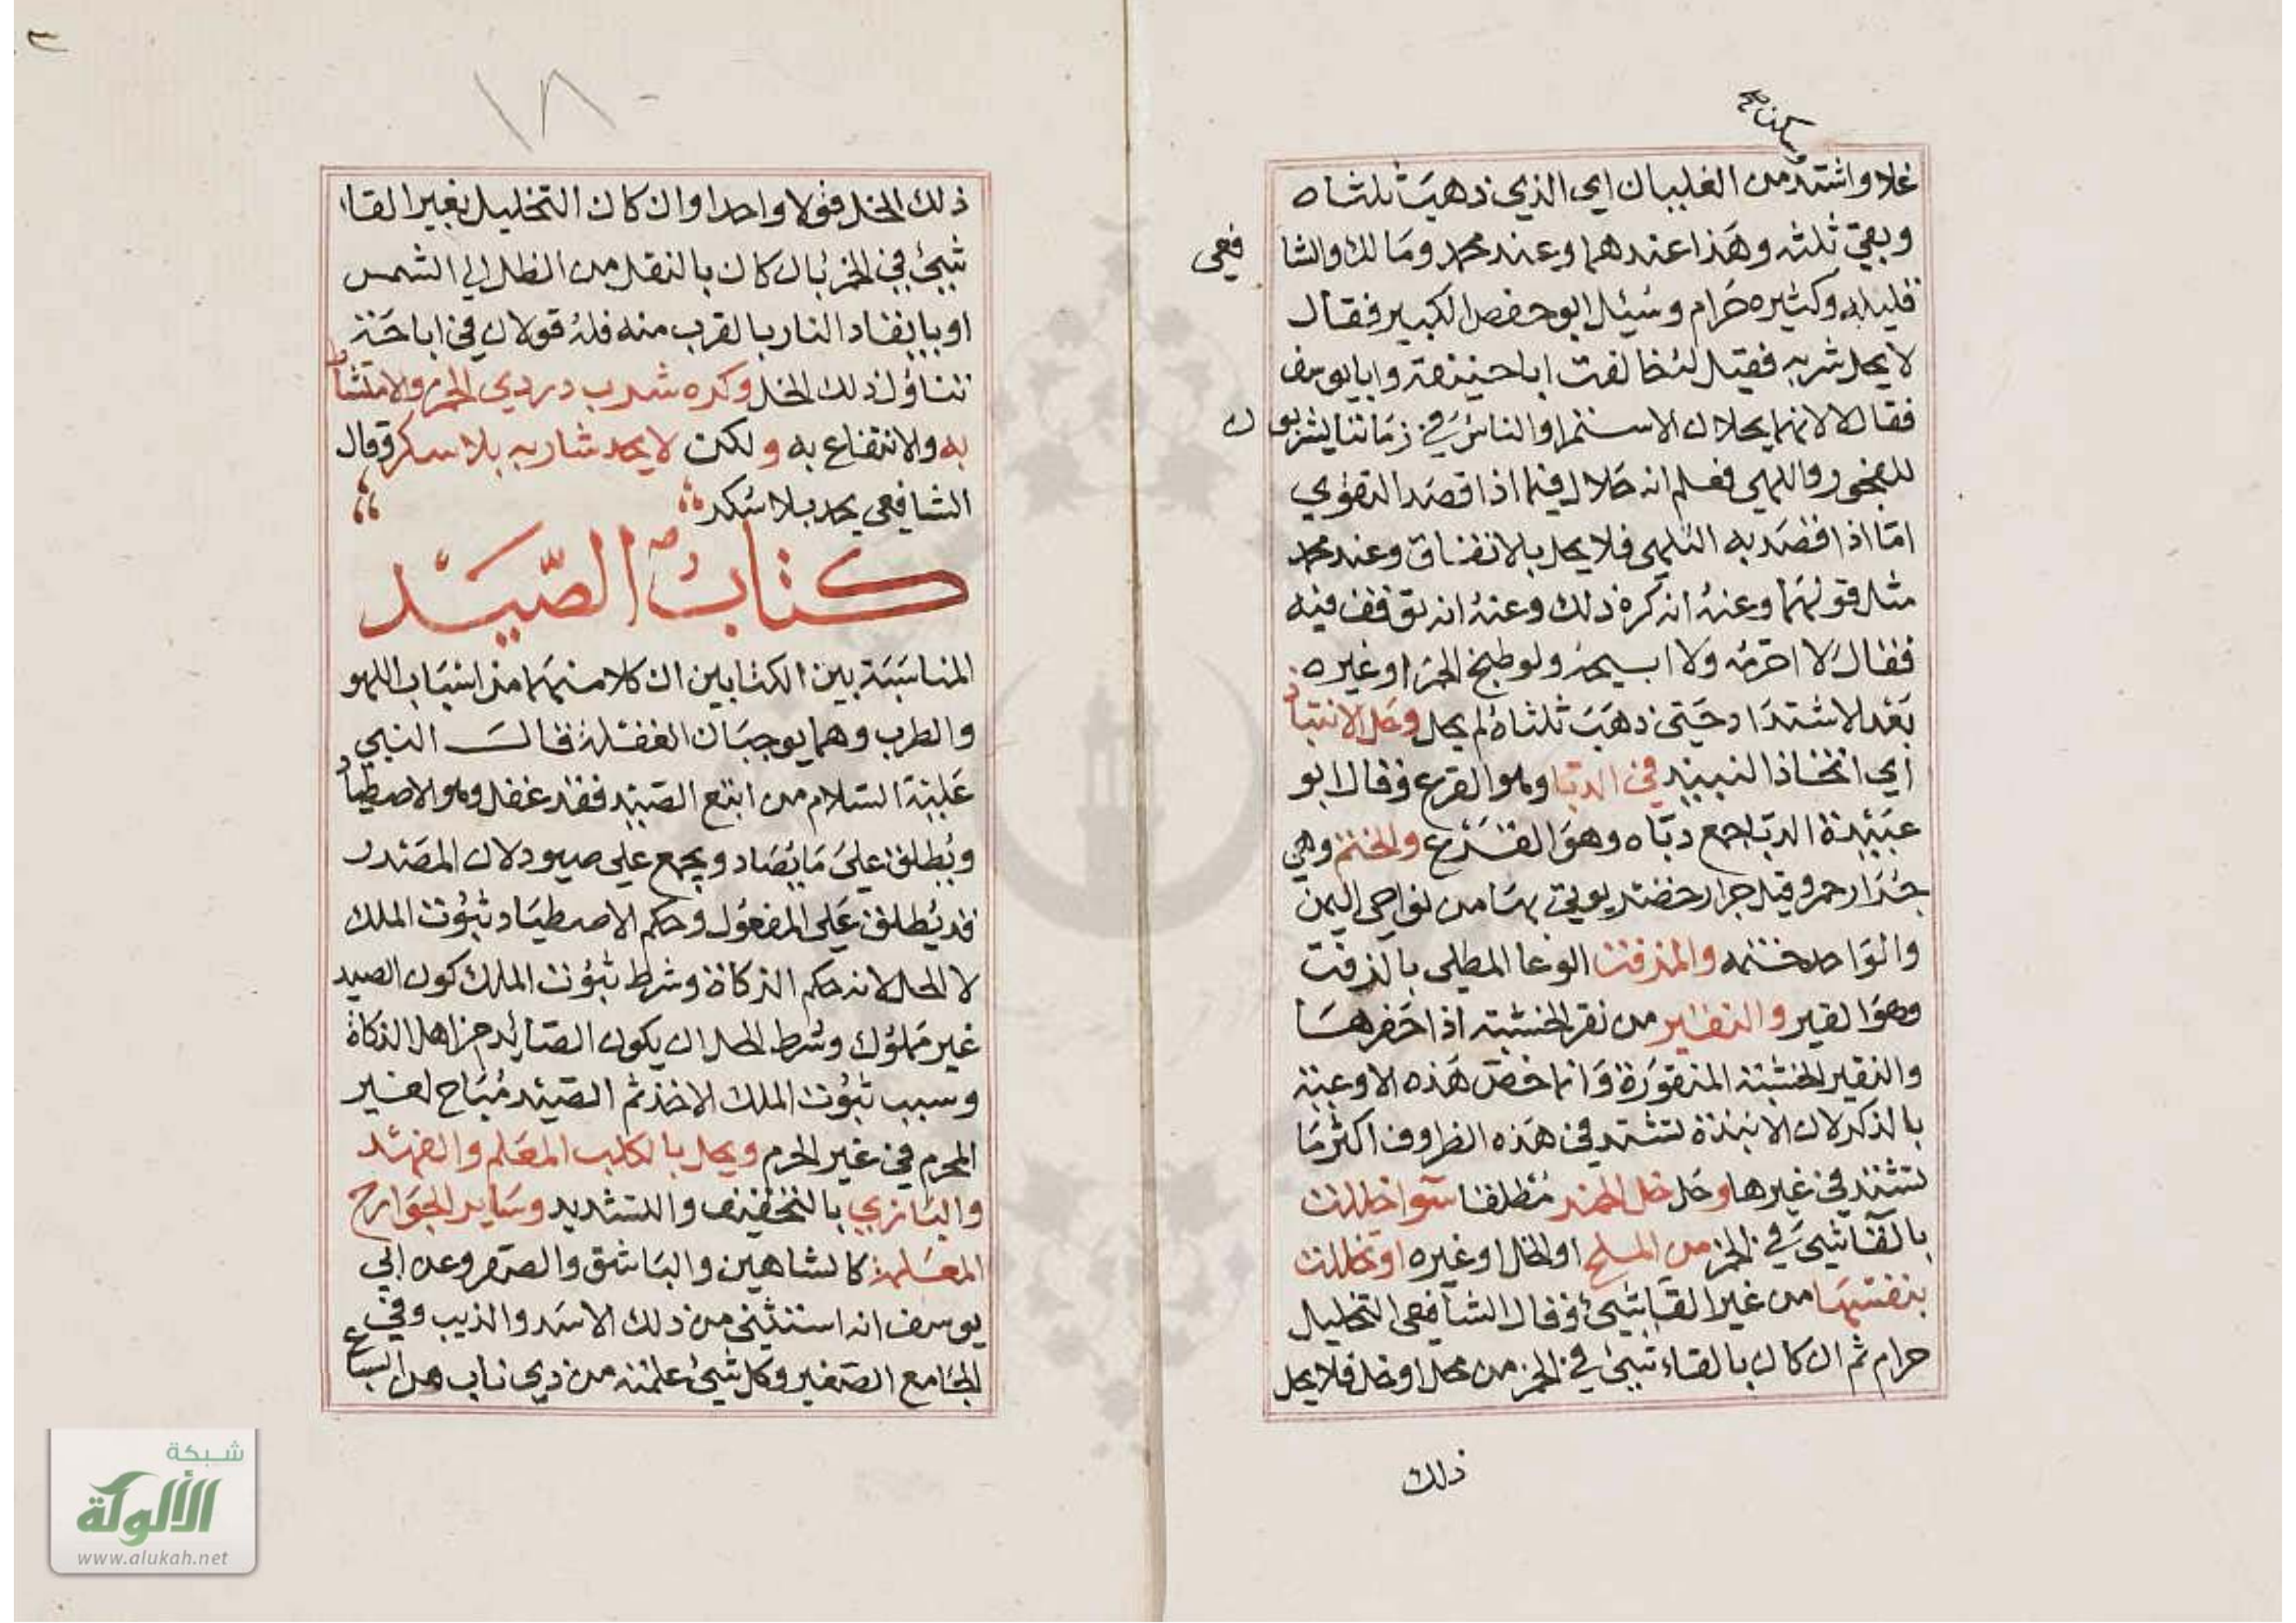 وسكن صح
غلا واشتد من الغليان اي الذي ذهبت ثلثاه
وبقي ثلثه وهذا عندهما وعند محمد ومالك والشا
فعي
قليله وكثيره حرام وسئيل ابو حفص الكبير فقال
لا يحل شربه فقيل لئن خالفت ابا حنيفة وابا يوسف
فقال لا لانهما يحلان لاستمرا والناس في زماننا يشربون
للفجور واللهي فعلم انه حلال فيما اذا قصد التقوي
اما اذا قصد به التلهي فلا يحل بالاتفاق وعند محمد
مثل قولهما وعنه انه كره ذلك وعنه انه توقف فيه
فقال لا احرمه ولا ابيحه ولو طبخ الخمر او غيره
بعد الاشتداد حتي ذهب ثلثاه لم يحل وحل الانتباذ
اي اتخاذ النبيذ في الدبا وهو القرع وقال ابو
عبيدة الدبا جمع دباه وهو القرع والحنتم وهي
جرار حمر وقيل جرار خضر يوتي بها من نواحي اليمن
والواحد حنتمه والمزفت الوعا المطلي بالزفت
وهو القير والنقير من نقر الخشبة اذا حفرها
والنقير الخشبة المنقورة وانما خص هذه الاوعية
بالذكر لان الانبذة تشتد في هذه الظروف اكثر ما
تشتد في غيرها وحل خل الخمر مطلقا سوا خللت
بالقا شيء في الخمر من الملح او الخل او غيره او تخللت
بنفسها من غير القا شيء وقال الشافعي التخليل
حرام ثم ان كان بالقاء شيئ في الخمر من ملح او خل فلا يحل
ذلك
١٨
ذلك الخل قولا واحدا وان كان التخليل بغير القاء
شيئ في الخمر بان كان بالنقل من الظل الي الشمس
او بايقاد النار بالقرب منه فله قولان في اباحة
تناول ذلك الخل وكره شرب دردي الخمر والامتشاط
به والانتفاع به ولكن لا يحد شاربه بلا سكر وقال
الشافعي يحد بلا سكر
كتاب الصيد
المناسبة بين الكتابين ان كلا منهما من اسباب اللهو
والطرب وهما يوجبان الغفلة قال النبي
عليه السلام من اتبع الصيد فقد غفل وهو الاصطياد
ويطلق علي ما يصاد ويجمع علي صيود لان المصدر
قد يطلق علي المفعول وحكم الاصطياد ثبوت الملك
لا الحل لانه حكم الذكاة وشرط ثبوت الملك كون الصيد
غير مملوك وشرط الحل ان يكون الصائد من اهل الذكاة
وسبب ثبوت الملك الاخذ ثم الصيد مباح لغير
المحرم في غير الحرم ويحل بالكلب المعلم والفهد
والبازي بالتخفيف والتشديد وساير الجوارح
المعلمة كالشاهين والباشق والصقر وعن ابي
يوسف انه استثني من ذلك الاسد والذيب وفي
الجامع الصغير وكل شيئ علمته من ذي ناب من السباع
شبكة
الألوكة
www.alukah.net